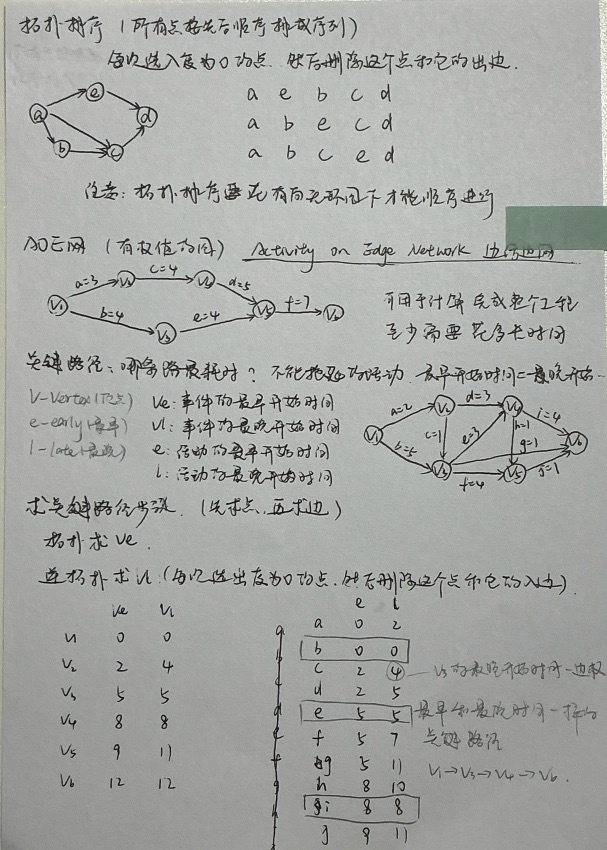 拓扑排序（所有点按先后顺序排成序列）
每次选入度为0的点，然后删除这个点和它的出边.
a e b c d
a b e c d
a b c e d
a e b c d
注意：拓扑排序要在有向无环图下才能顺序进行
AOE网（有权值的图） Activity on Edge Network
a=3 c=4 d=5 b=4 e=4 f=7
V1 V2 V4 V3 V5 V6
可用于计算完成整个工程
至少需要花多长时间
关键路径：哪条路最耗时？不能拖延的活动 最早开始时间=最晚开始…
V-Vertex（顶点） Ve：事件的最早开始时间
e-early（最早） Vl：事件的最晚开始时间
l-late（最晚） e：活动的最早开始时间
l：活动的最晚开始时间
a=2 d=3 i=4 b=5 c=1 e=3 h=1 g=1 f=4 j=1
V1 V2 V4 V3 V5 V6
求关键路径步骤.（先求点、再求边）
拓扑求Ve.
逆拓扑求Vl（每次选出度为0的点，然后删除这个点和它的入边）.
Ve Vl
V1 0 0
V2 2 4
V3 5 5
V4 8 8
V5 9 11
V6 12 12
e l
a 0 2
b 0 0
c 2 4 — V3的最晚开始时间－边权
d 2 5
e 5 5 最早和最晚时间一样的
f 5 7 关键路径
g 5 11 V1→V3→V4→V6.
h 8 10
i 8 8
j 9 11